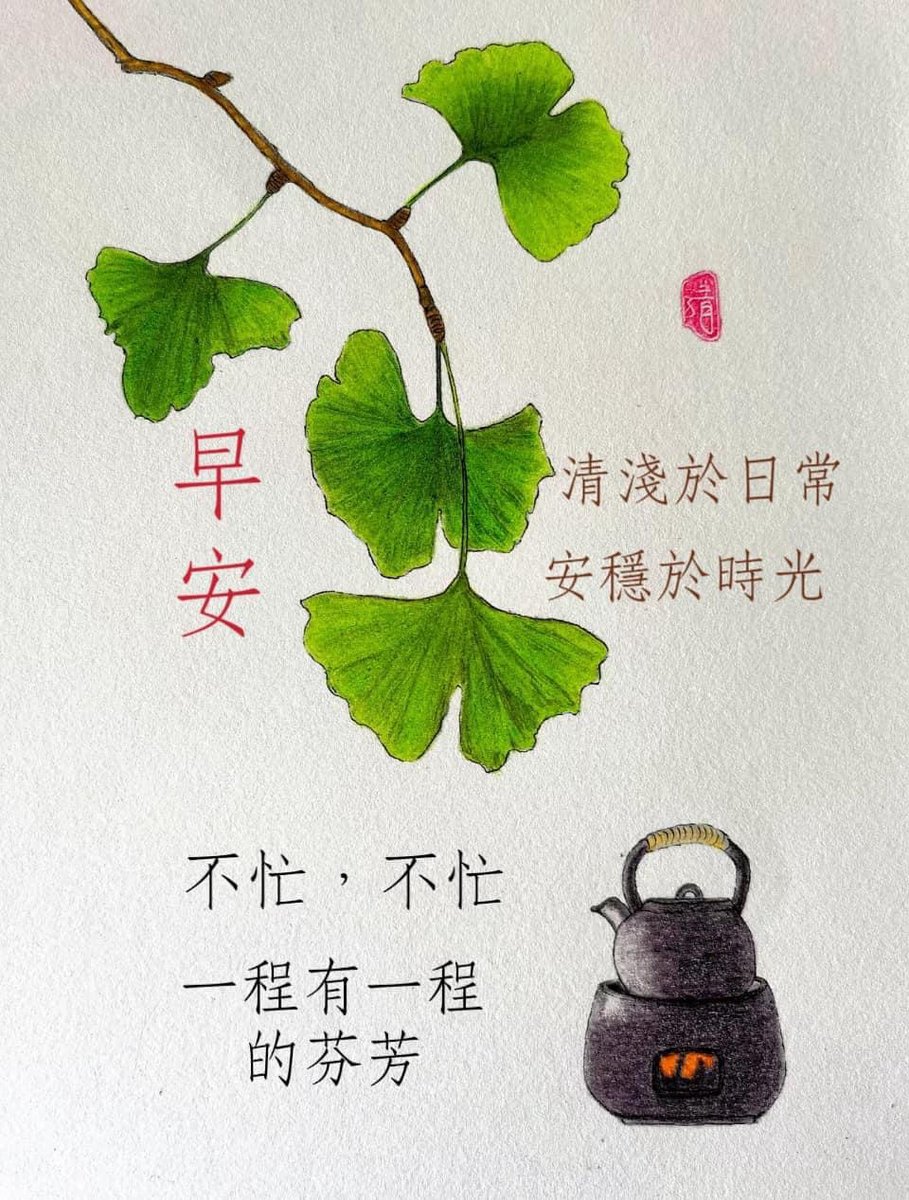 早安
清淺於日常
安穩於時光
不忙，不忙
一程有一程
的芬芳